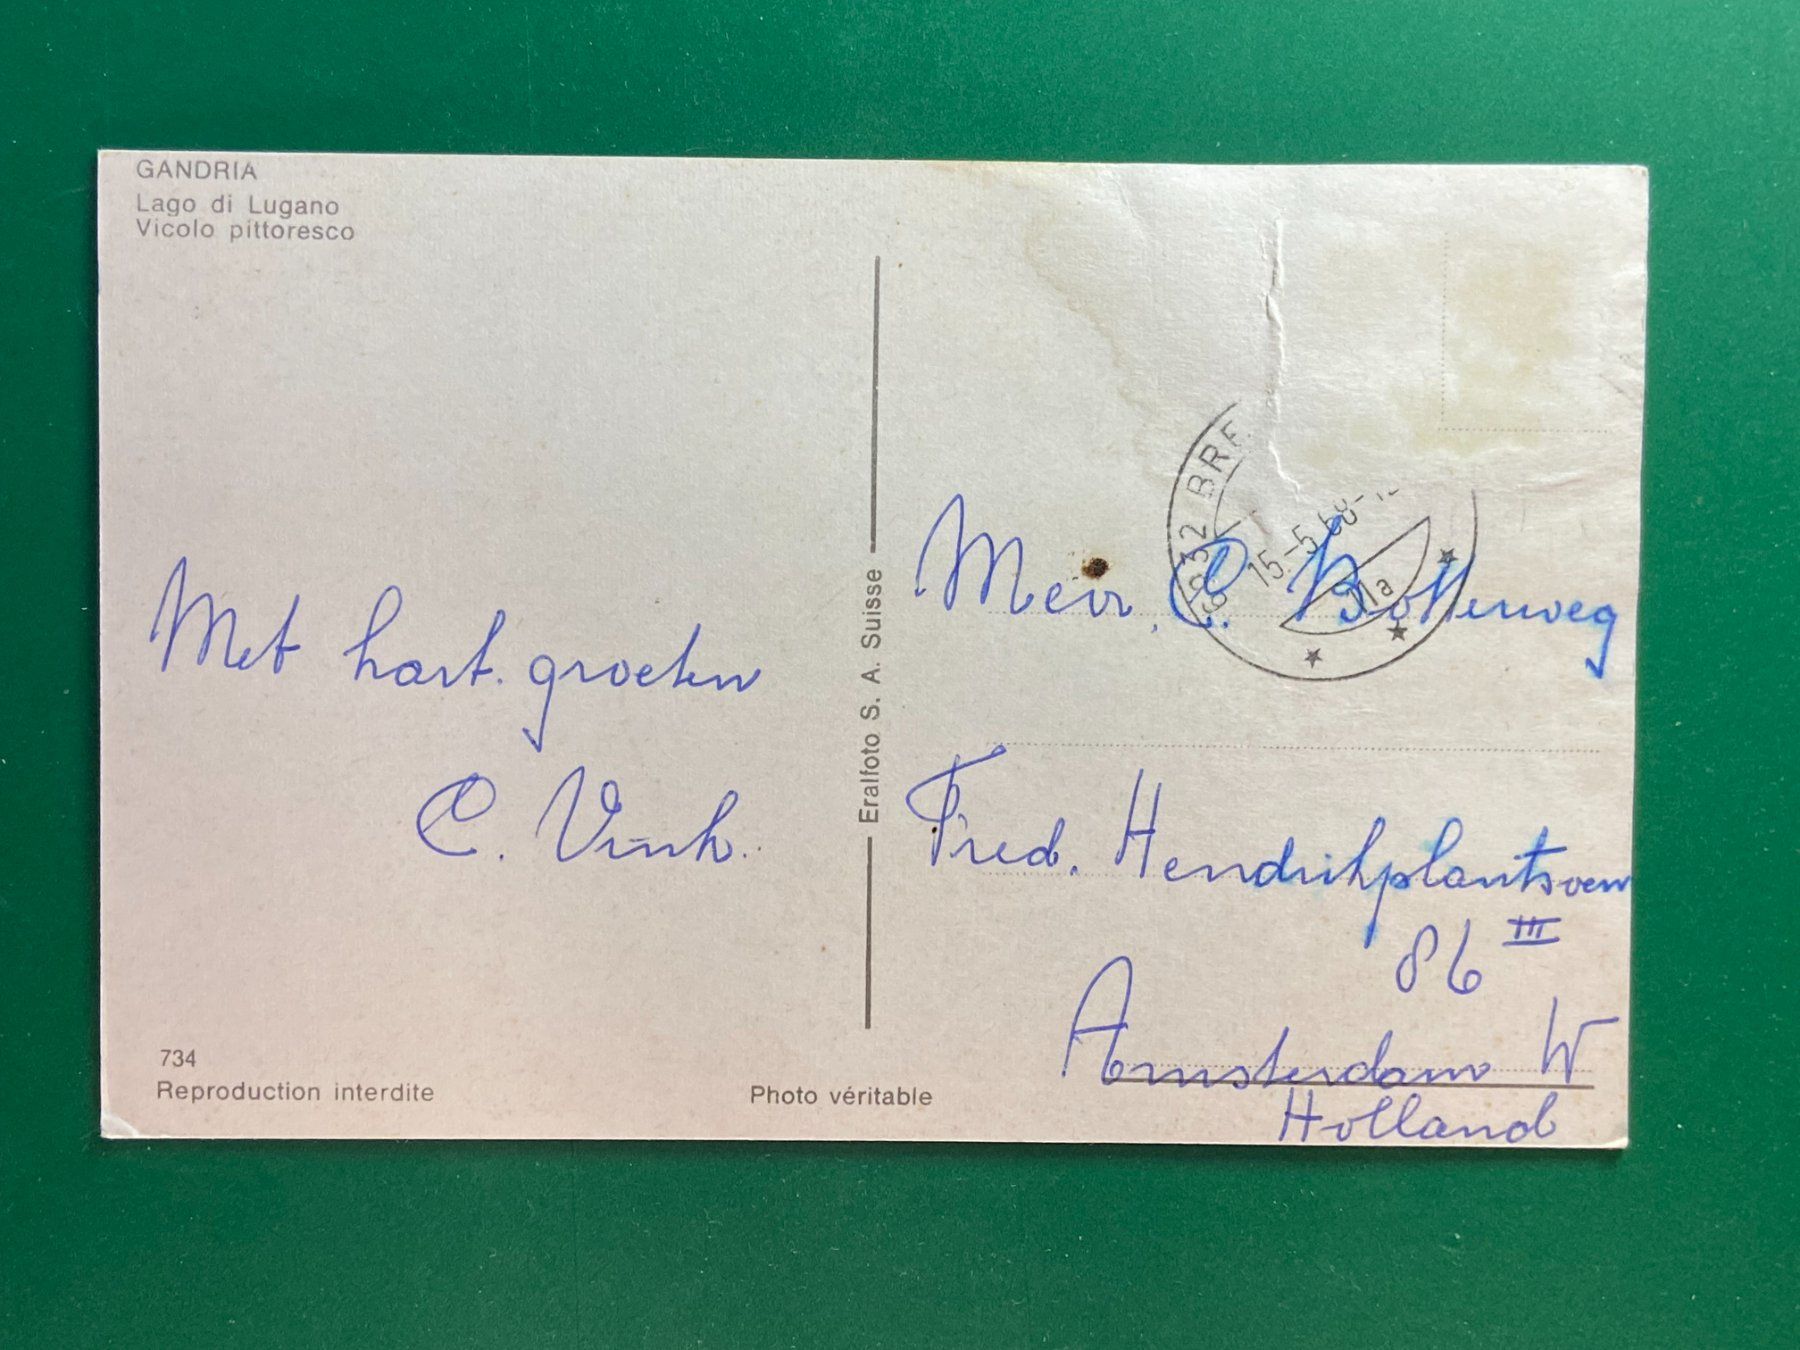 GANDRIA
Lago di Lugano
Vicolo pittoresco
Met hart. groeten
C. Vink.
734
Reproduction interdite
Photo véritable
Eralfoto S. A. Suisse
BRE
15.-5.68-1
VIa
Mevr. C. Bottenweg
Fred. Hendrikplantsoen
86 III
Amsterdam W
Holland